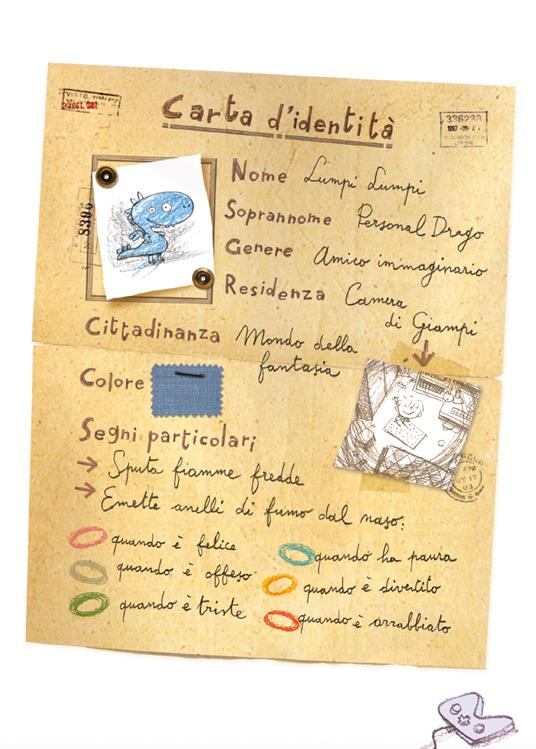 Carta d'identità
336233
8395
Nome Lumpi Lumpi
Soprannome Personal Drago
Genere Amico immaginario
Residenza Camera
di Giampi
Cittadinanza Mondo della
fantasia
Colore
Segni particolari
→ Sputa fiamme fredde
→ Emette anelli di fumo dal naso:
quando è felice
quando ha paura
quando è offeso
quando è divertito
quando è triste
quando è arrabbiato